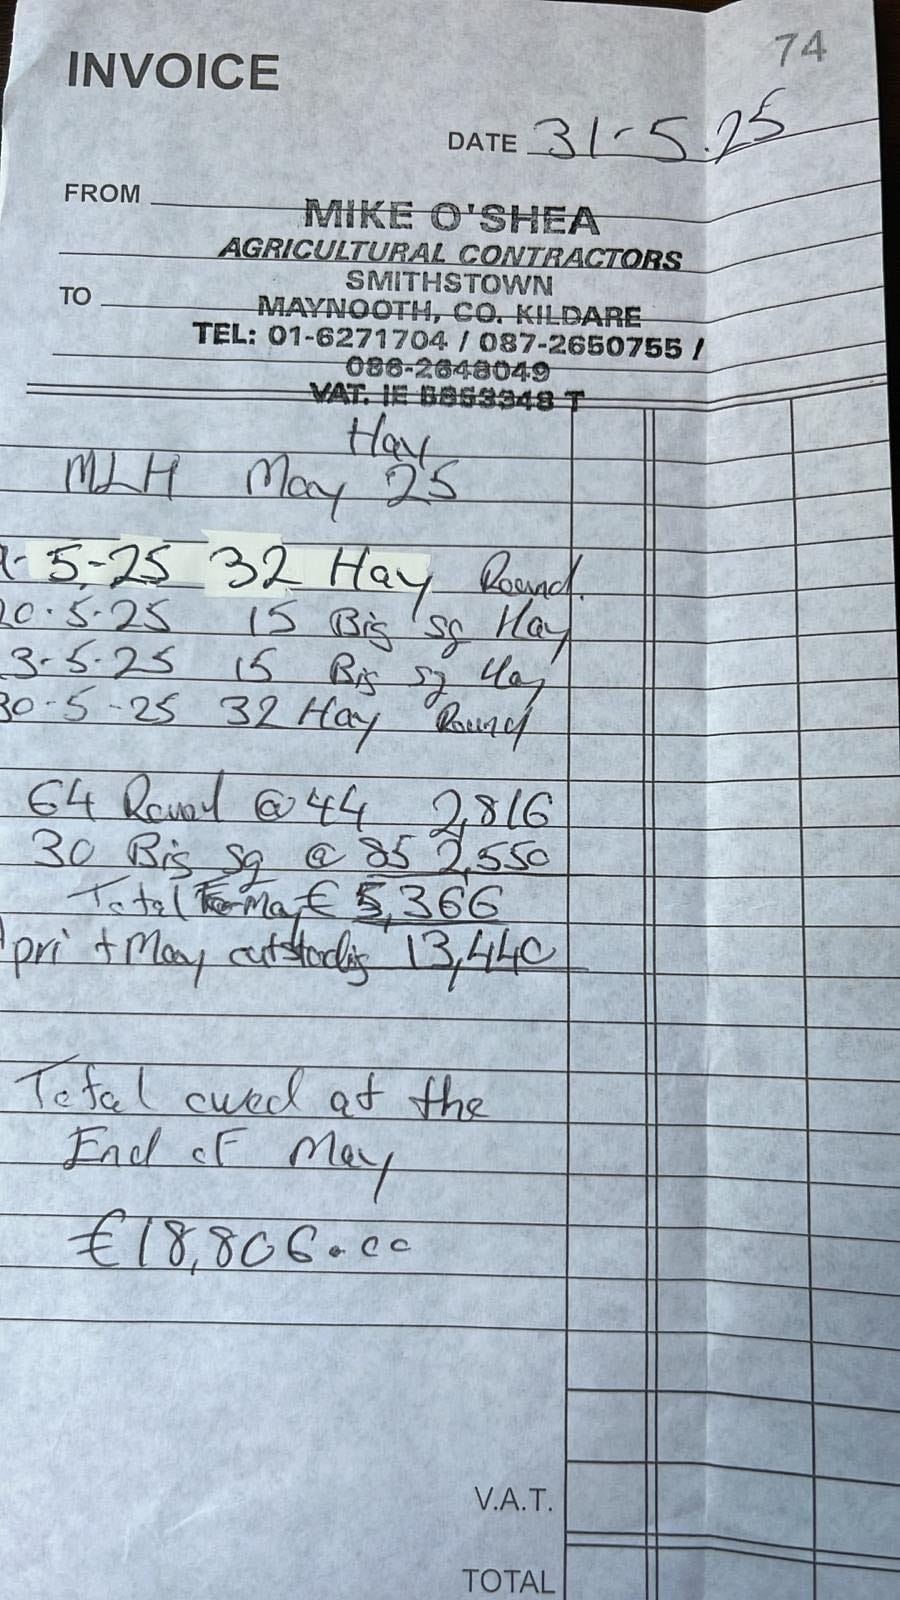 74
INVOICE
DATE 31-5.25
FROM
MIKE O'SHEA
AGRICULTURAL CONTRACTORS
SMITHSTOWN
TO
MAYNOOTH, CO. KILDARE
TEL: 01-6271704 / 087-2650755 /
086-2648049
VAT. IE T
Hay
MLH May 25
-5-25 32 Hay Round.
20.5.25 15 Big sq Hay
3-5-25 15 Big sq Hay
30-5-25 32 Hay Round
64 Round @ 44 2,816
30 Big Sq @ 85 2,550
Total May € 5,366
pri + May outstandig 13,440
Total owed at the
End of May
€18,806.00
V.A.T.
TOTAL